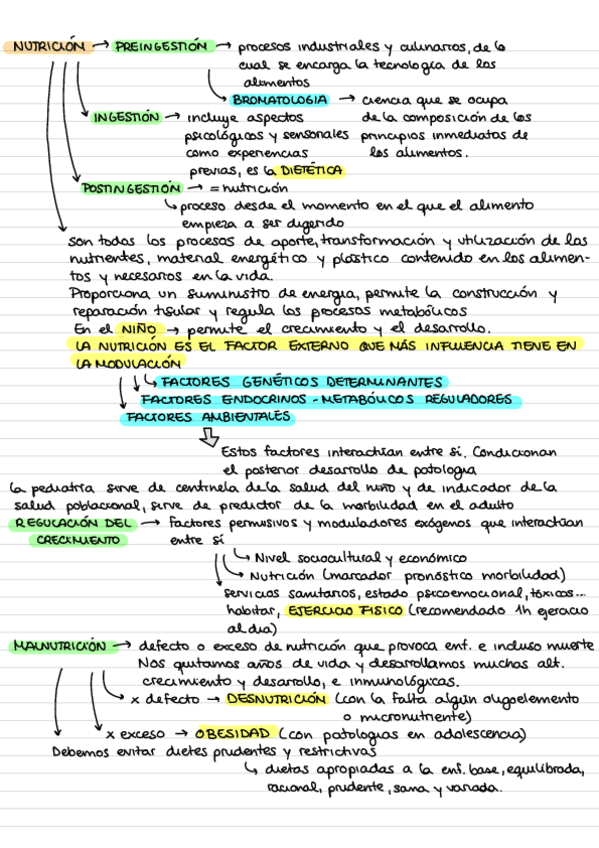 NUTRICIÓN → PREINGESTIÓN → procesos industriales y culinarios, de lo
cual se encarga la tecnología de los
alimentos
BROMATOLOGIA → ciencia que se ocupa
INGESTIÓN → incluye aspectos de la composición de los
psicológicos y sensonales principios inmediatos de
como experiencias los alimentos.
previas, es la DIETÉTICA
POSTINGESTIÓN → = nutrición
↳ proceso desde el momento en el que el alimento
empieza a ser digerido
son todos los procesos de aporte, transformación y utilización de los
nutrientes, material energético y plástico contenido en los alimen-
tos y necesarios en la vida.
Proporciona un suministro de energia, permite la construcción y
reparación tisular y regula los procesos metabólicos
En el NIÑO → permite el crecimiento y el desarrollo.
LA NUTRICIÓN ES EL FACTOR EXTERNO QUE MÁS INFLUENCIA TIENE EN
LA MODULACIÓN
↳ FACTORES GENÉTICOS DETERMINANTES
FACTORES ENDOCRINOS - METABÓLICOS REGULADORES
FACTORES AMBIENTALES
Estos factores interactúan entre sí. Condicionan
el posterior desarrollo de patologia
La pediatría sirve de centinela de la salud del niño y de indicador de la
salud poblacional, sirve de predictor de la morbilidad en el adulto
REGULACIÓN DEL → Factores permisivos y moduladores exógenos que interactúan
CRECIMIENTO entre sí
↳ Nivel sociocultural y económico
↳ Nutrición (marcador pronóstico morbilidad)
servicios sanitarios, estado psicoemocional, tóxicos...
habitar, EJERCICIO FISICO (recomendado 1h ejercicio
al dia)
MALNUTRICIÓN → defecto o exceso de nutrición que provoca enf. e incluso muerte
Nos quitamos años de vida y desarrollamos muchas alt.
crecimiento y desarrollo, e inmunológicas.
x defecto → DESNUTRICIÓN (con la falta algún oligoelemento
o micronutriente)
x exceso → OBESIDAD (con patologias en adolescencia)
Debemos evitar dietes prudentes y restrictivas
↳ dietas apropiadas a la enf. base, equilibrada,
racional, prudente, sana y variada.